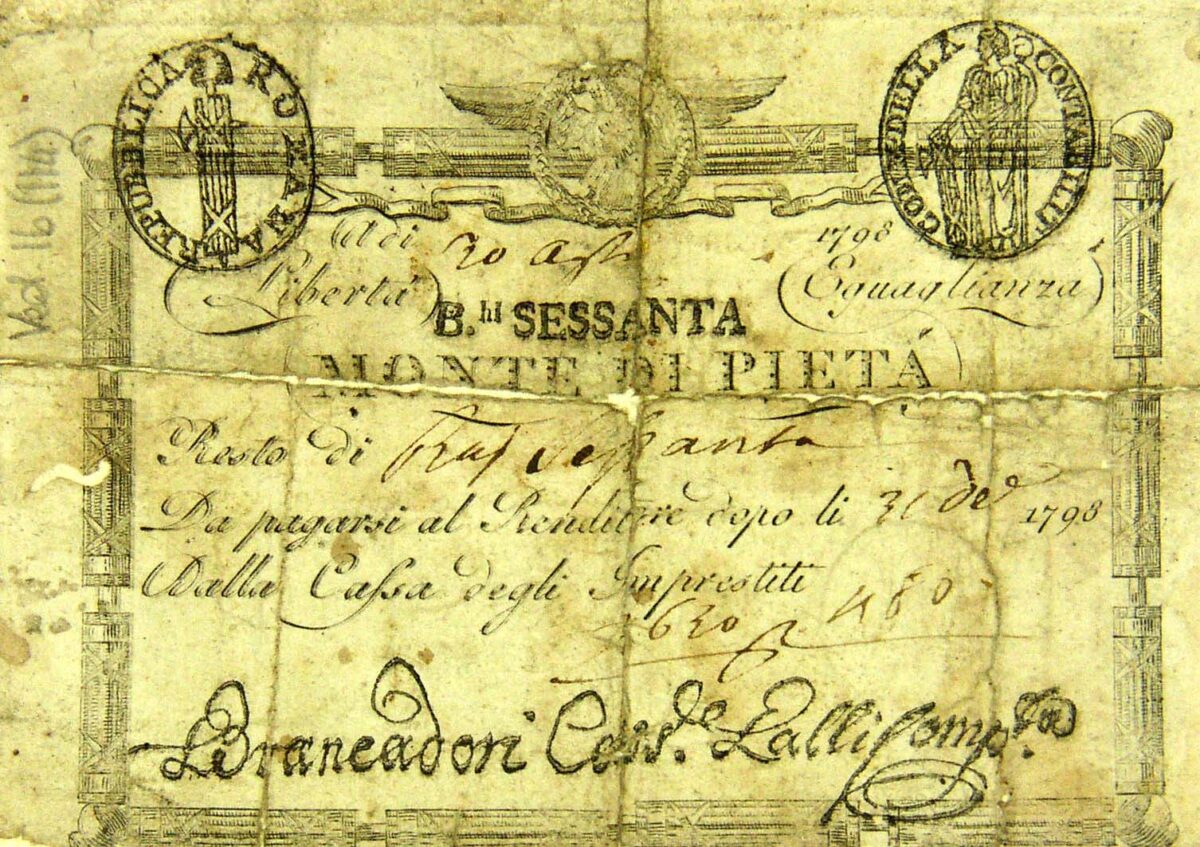 REPUBLICA ROMANA
COM. DELLA CONTABILITA
Vad 16 (114)
Adi 30 1798
Libertá Eguaglianza
B.hi SESSANTA
MONTE DI PIETÁ
Resto di Sessanta
Da pagarsi al Renditore dopo li 31 1798
Dalla Cassa degli Imprestiti
Brancadori Cass.re Lalli Comp.ta